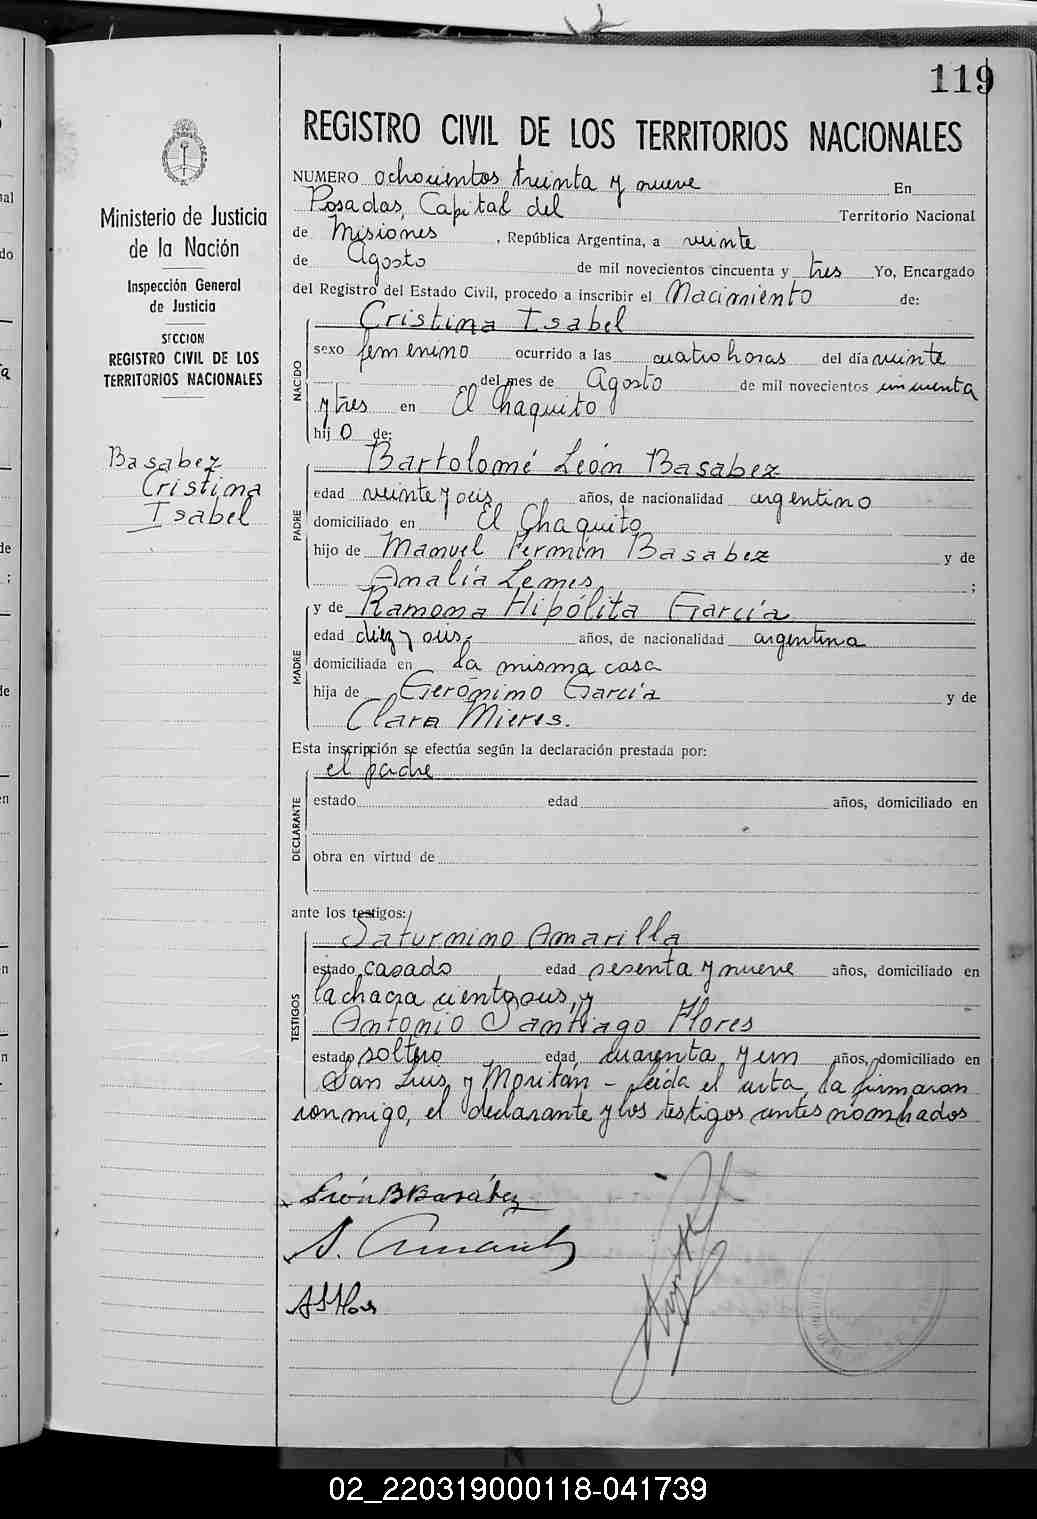 119
REGISTRO CIVIL DE LOS TERRITORIOS NACIONALES
Ministerio de Justicia
de la Nación
Inspección General
de Justicia
SECCION
REGISTRO CIVIL DE LOS
TERRITORIOS NACIONALES
Basabez
Cristina
Isabel
NUMERO ochocientos treinta y nueve En
Posadas, Capital del Territorio Nacional
de Misiones, República Argentina, a veinte
de Agosto de mil novecientos cincuenta y tres Yo, Encargado
del Registro del Estado Civil, procedo a inscribir el Nacimiento de:
Cristina Isabel
NACIDO
sexo femenino ocurrido a las cuatro horas del día veinte
del mes de Agosto de mil novecientos cincuenta
y tres en El Chaquito
hij o de:
Bartolomé León Basabez
PADRE
edad veinte y seis años, de nacionalidad argentino
domiciliado en El Chaquito
hijo de Manuel Fermín Basabez y de
Amalia Lemes ;
y de Ramona Hipólita García
MADRE
edad diez y seis, años, de nacionalidad argentina
domiciliada en la misma casa
hija de Gerónimo García y de
Clara Mieres.
Esta inscripción se efectúa según la declaración prestada por:
el padre
DECLARANTE
estado edad años, domiciliado en
obra en virtud de
ante los testigos:
Saturnino Amarilla
TESTIGOS
estado casado, edad sesenta y nueve años, domiciliado en
la chacra ciento seis, y
Antonio Santiago Flores
estado soltero, edad, cuarenta y un años, domiciliado en
San Luis y Moritán - Leída el acta, la firmaron
conmigo, el declarante y los testigos antes nombrados
León B Basabez
S. Amarilla
A S Flores
02_220319000118-041739